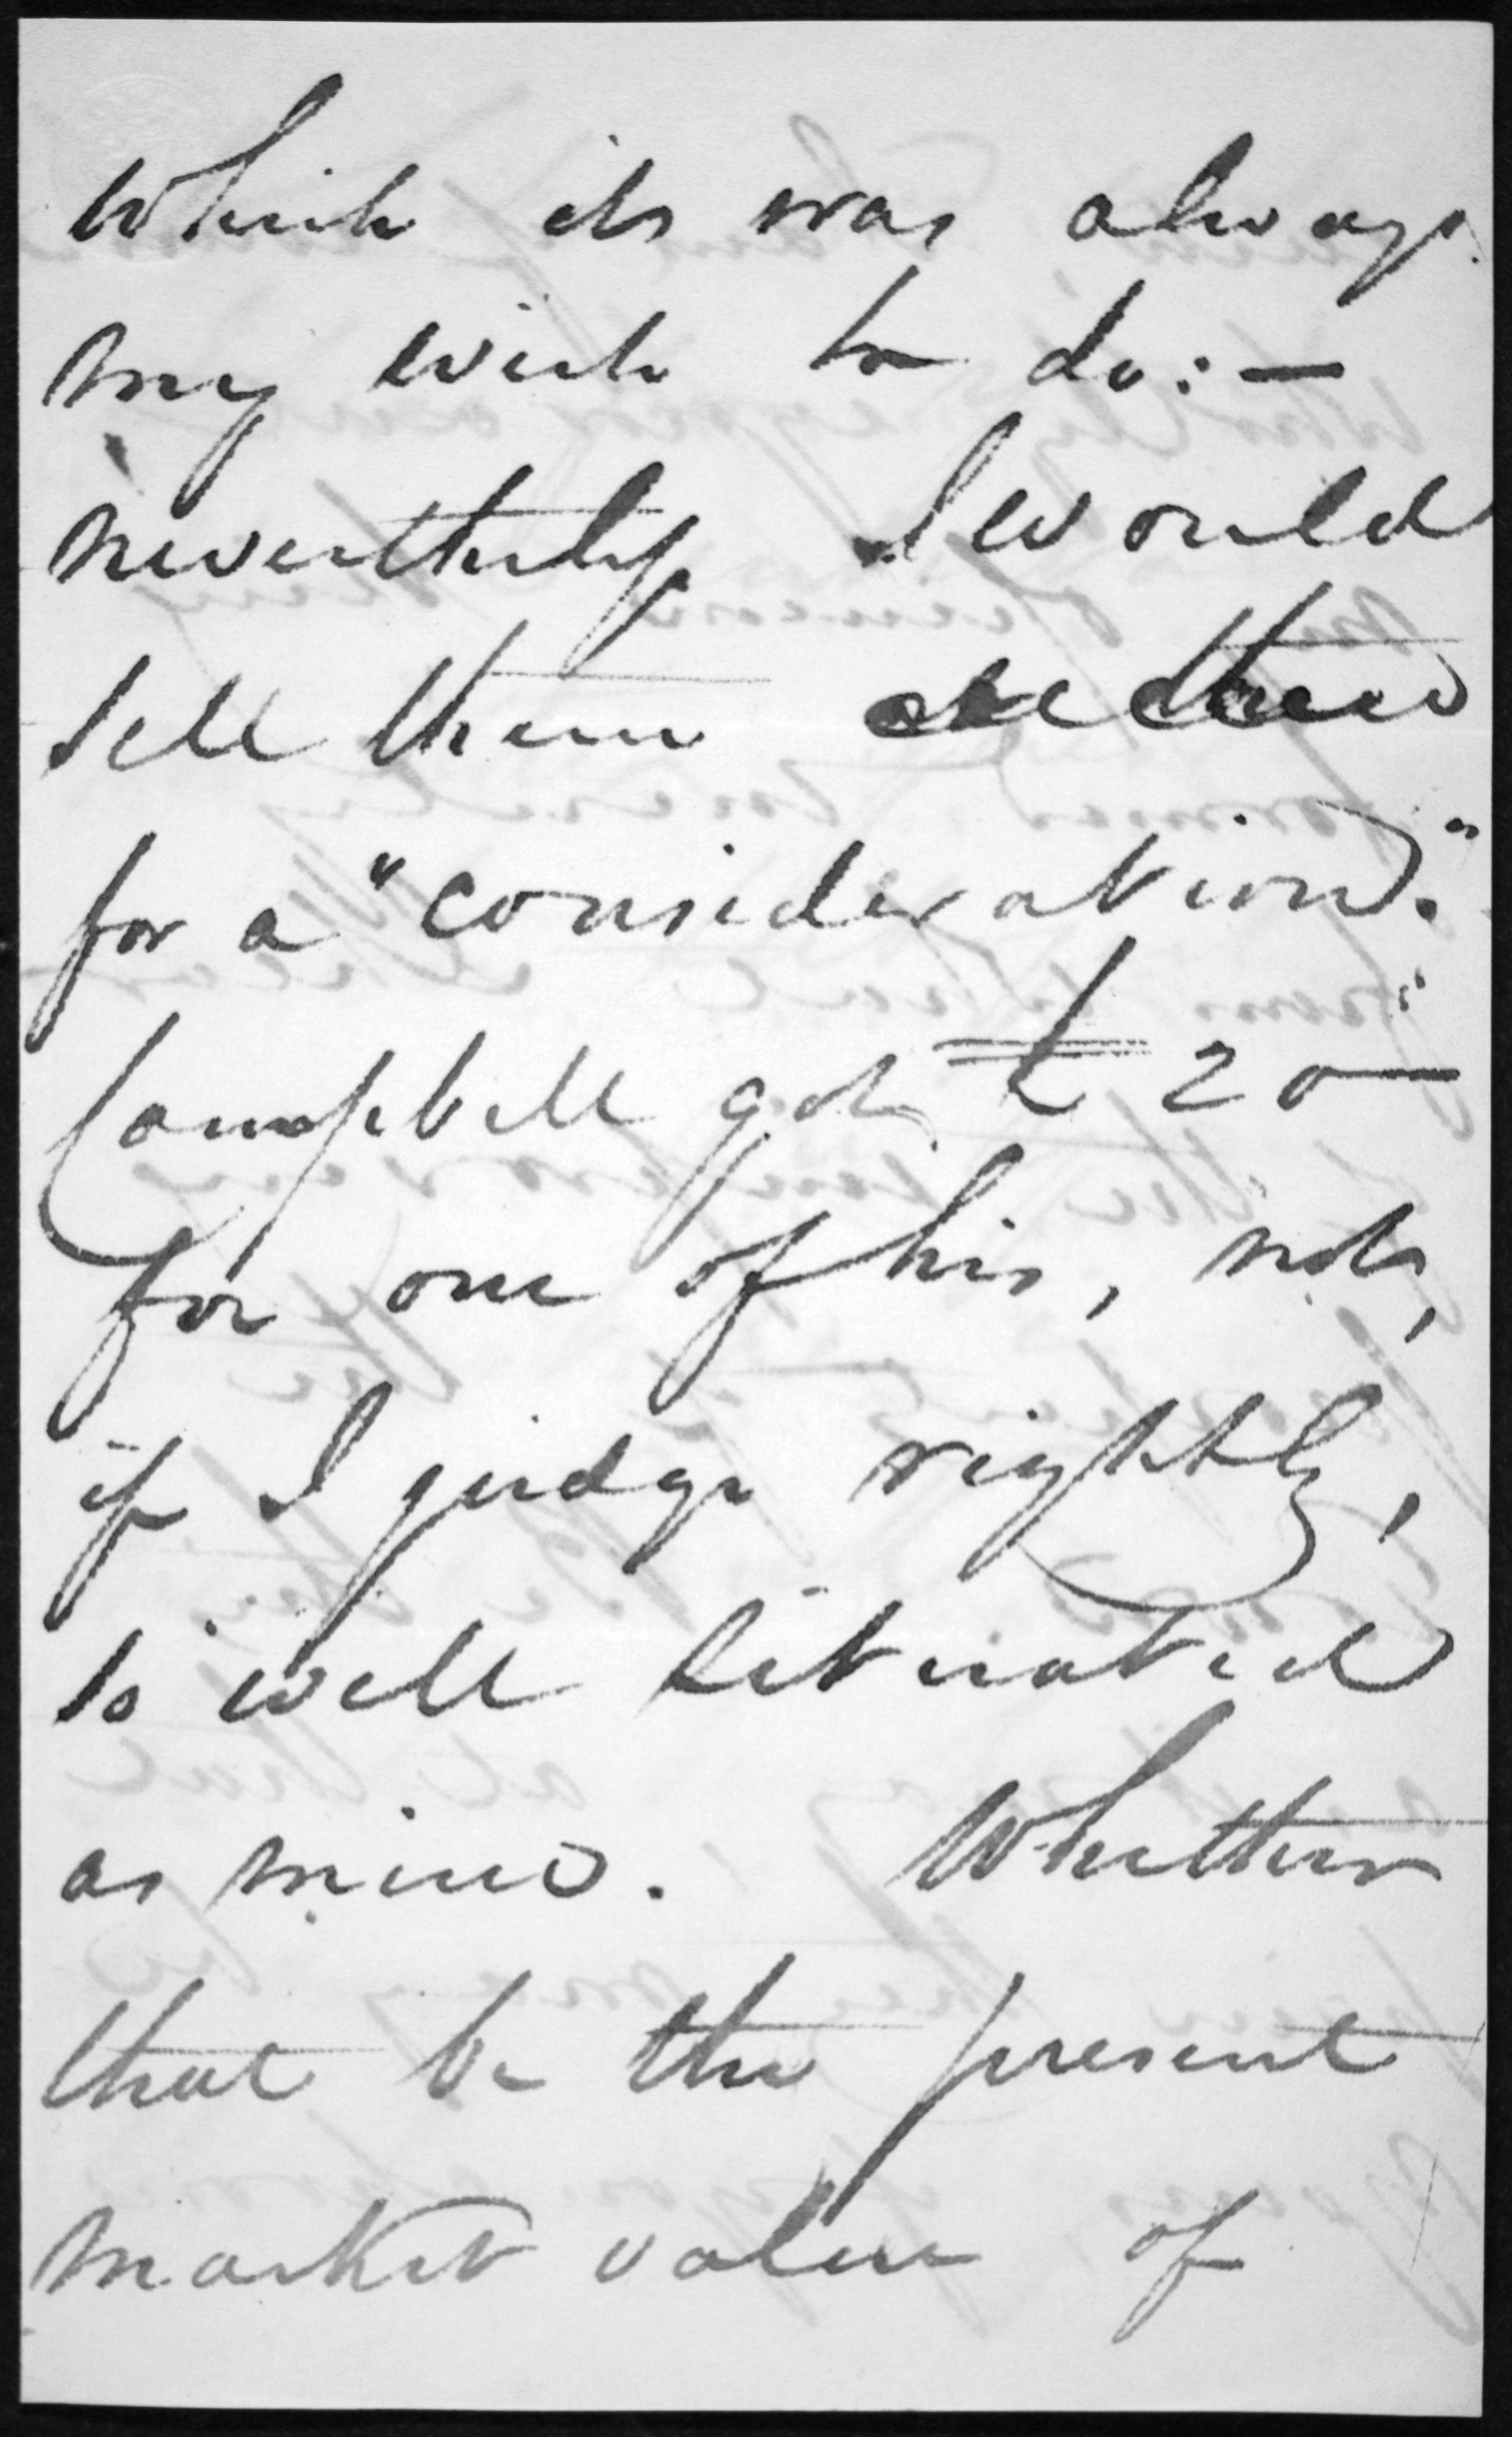 which it was always
my wish to do: —
nevertheless I would
sell them
for a "consideration."
Campbell got £20 —
for one of his, not,
if I judge rightly,
so well situated
as mine. Whether
that be the present
market value of